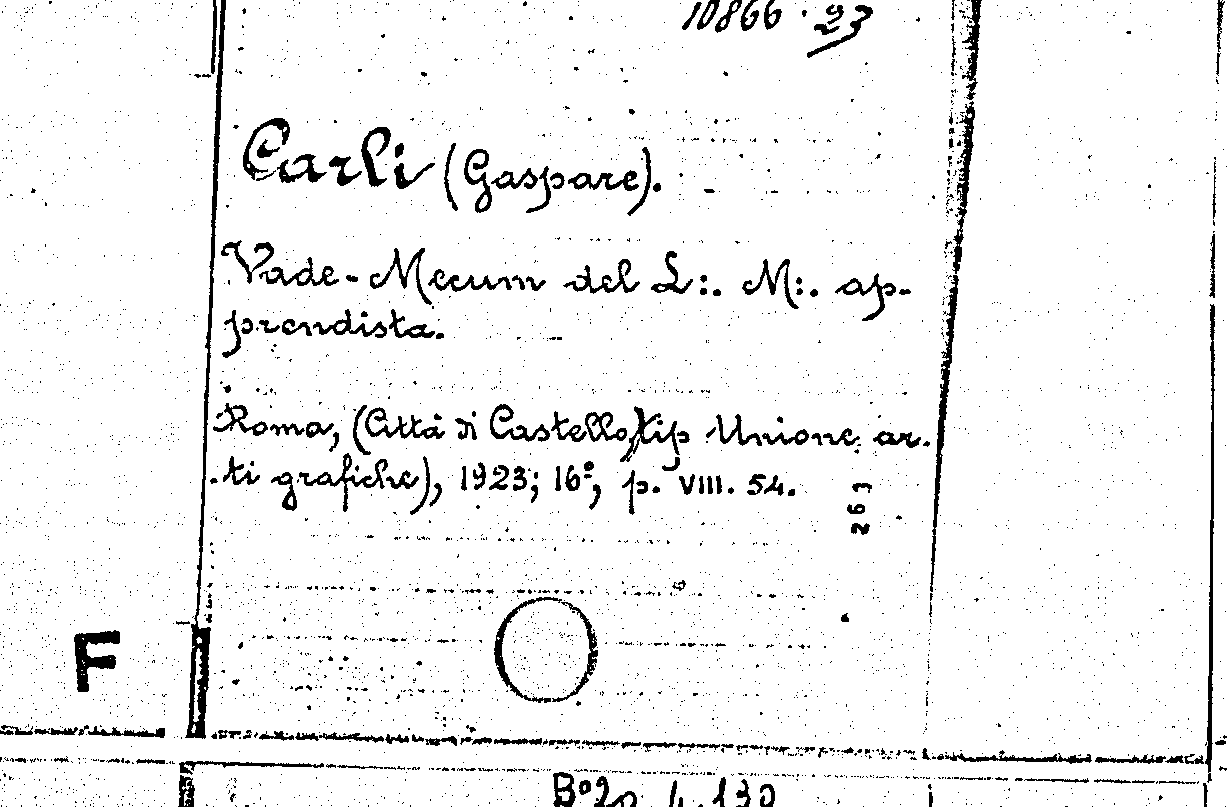 10866 · 23
Carli (Gaspare).
Vade-Mecum del L:. M:. ap-
prendista.
Roma, (Città di Castello, tip Unione ar-
ti grafiche), 1923; 16º, p. VIII. 54.
263
F